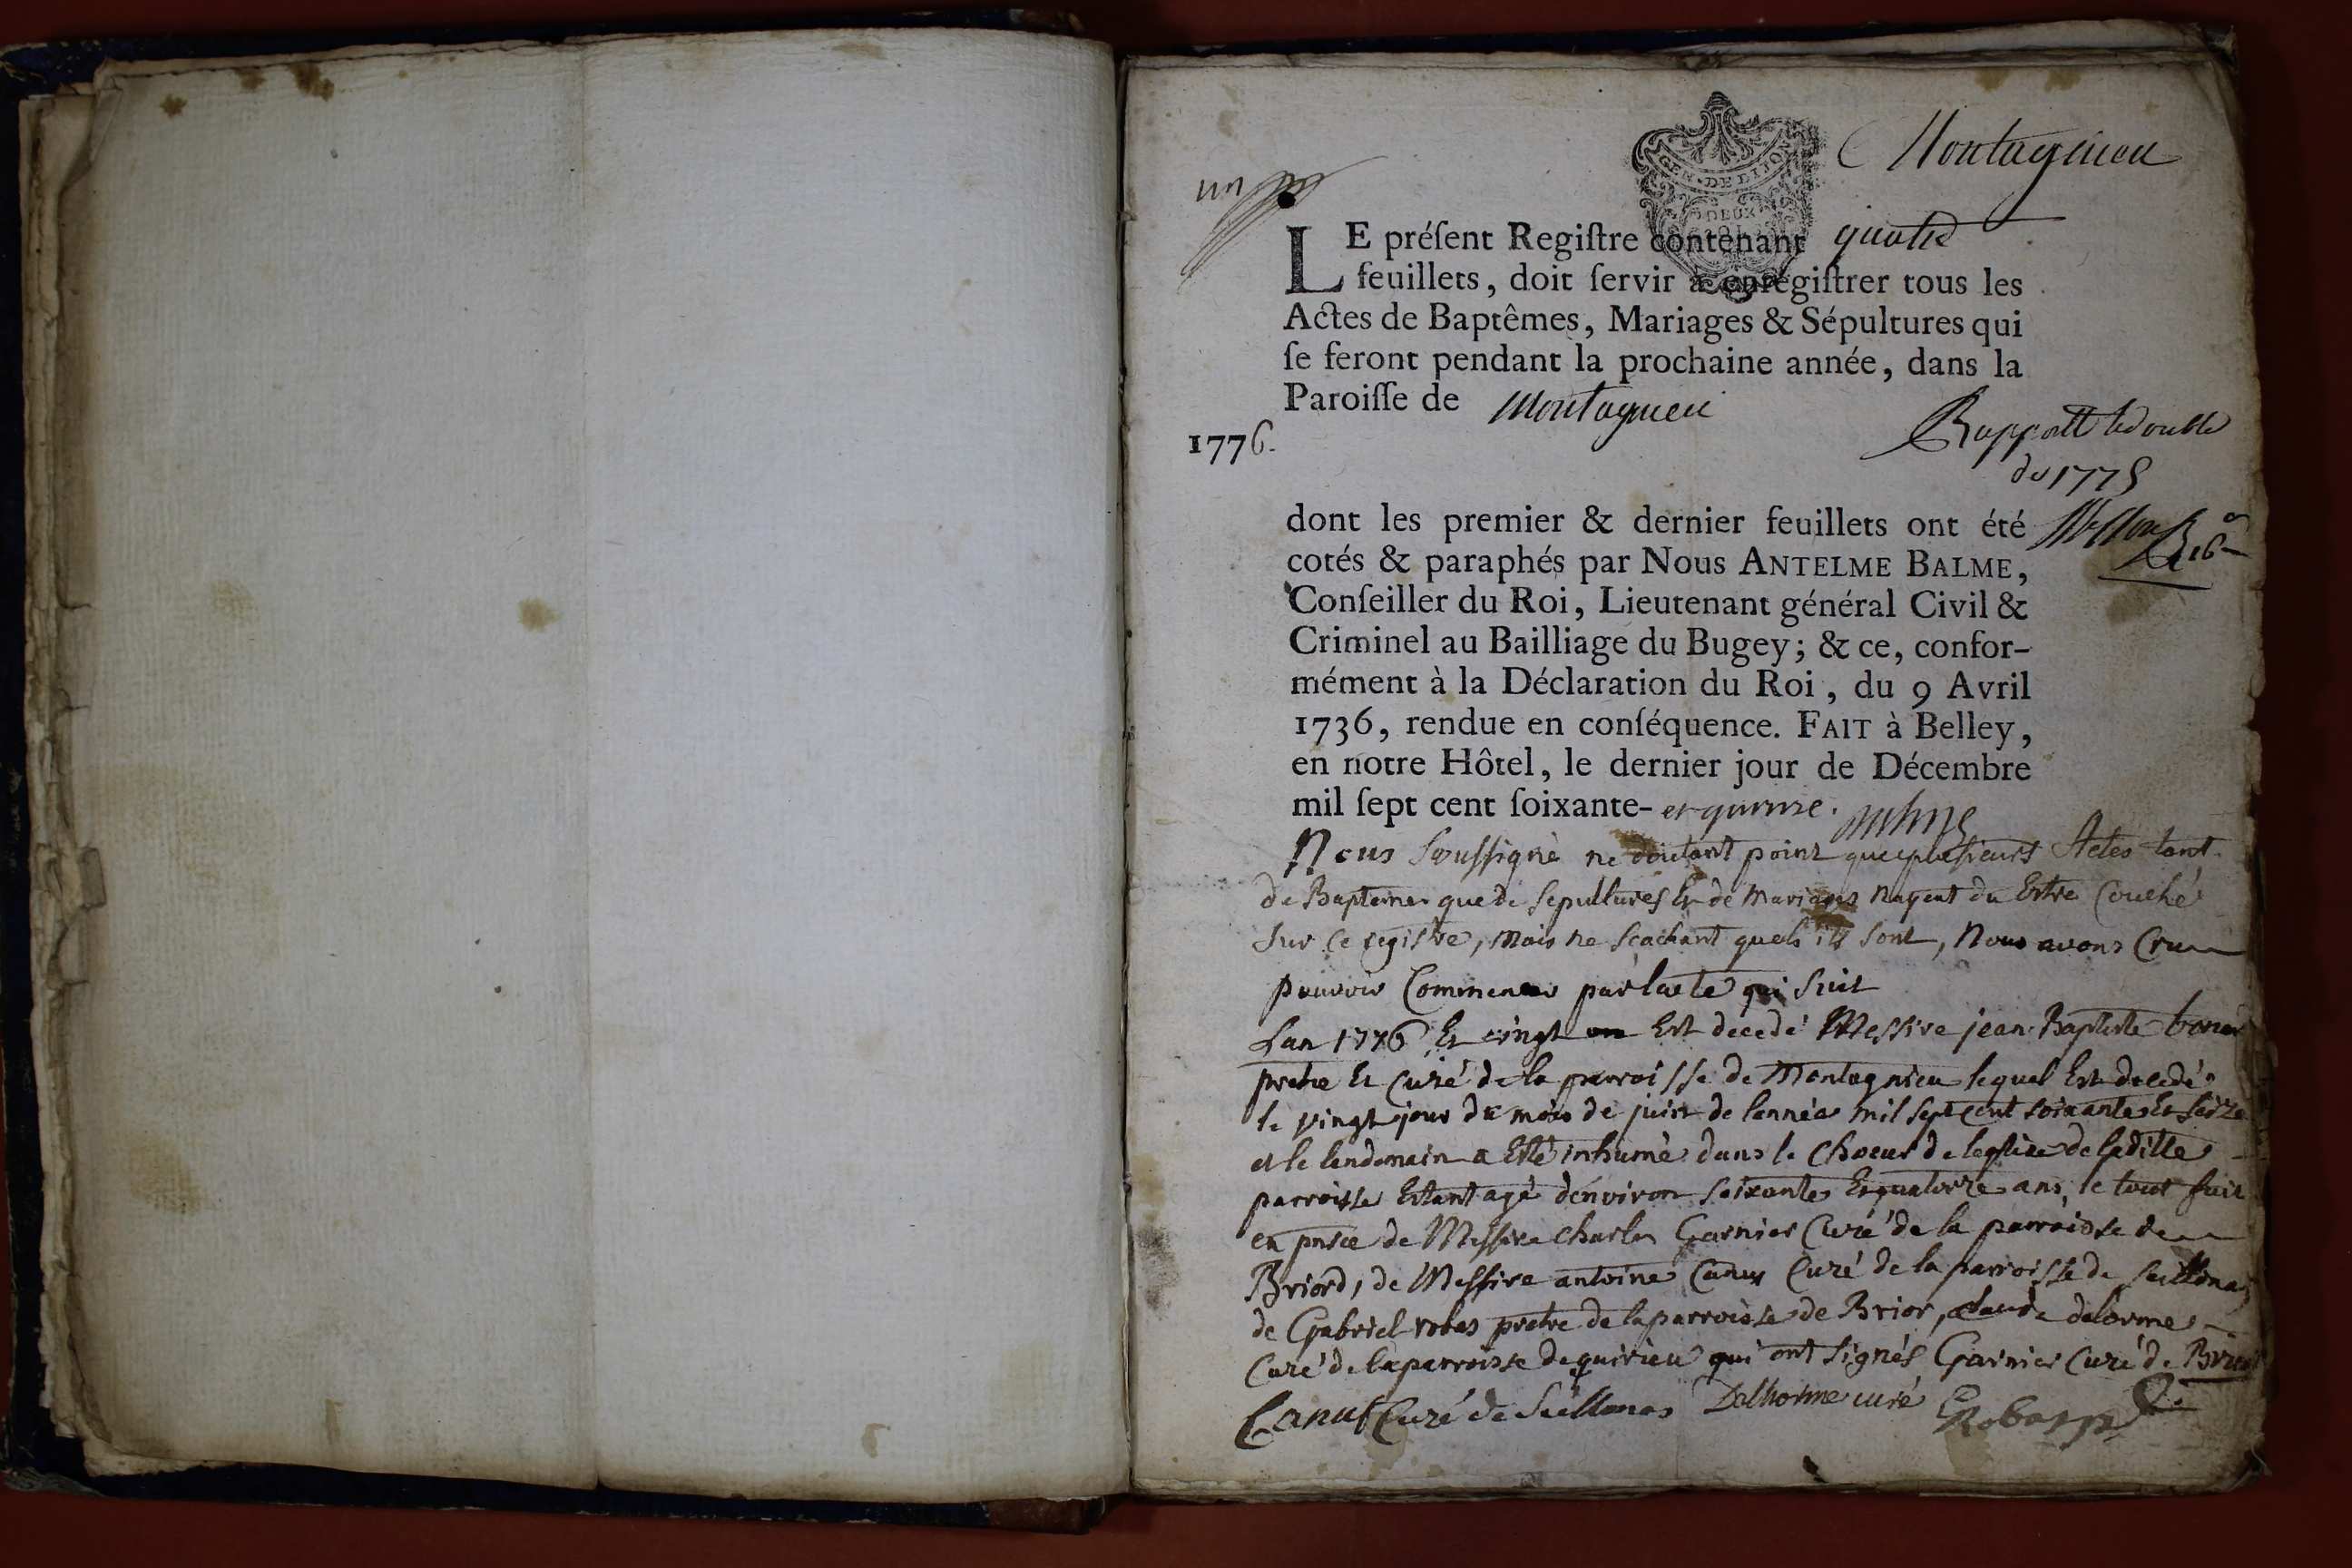 Montagnieu
un
GEN·DE DIJON
DEUX
LE préſent Regiſtre contenant quatre
feuillets, doit ſervir à enregiſtrer tous les
Actes de Baptêmes, Mariages & Sépultures qui
ſe feront pendant la prochaine année, dans la
Paroiſſe de Montagnieu
1776.
Rapporté le double
de 1775
dont les premier & dernier feuillets ont été
cotés & paraphés par Nous ANTELME BALME,
Conſeiller du Roi, Lieutenant général Civil &
Criminel au Bailliage du Bugey; & ce, confor-
mément à la Déclaration du Roi, du 9 Avril
1736, rendue en conſéquence. FAIT à Belley,
en notre Hôtel, le dernier jour de Décembre
mil ſept cent ſoixante- et quinze.
Nous Soussigné ne doutant point que plusieurs Actes tant
de Baptemes que de sepultures Et de Mariages nayent du Estre Couché
sur ce registre, mais ne scachant quels ils sont, Nous avons Cru
pouvoir Commencer par lacte qui suit
Lan 1776 Et vingt Est decedé Messire jean Baptiste
pretre Et Curé de la parroisse de Montagnieu lequel Est decedé
le vingt jour du mois de juin de lannée mil sept cent soixante Et seize
et le lendemain a Esté inhumé dans le Choeur de leglise de ladille
parroisse Estant agé denviron soixante Et quatorze ans, le tout fait
en pnsce de Messire charles Garnier Curé de la parroisse de
Briord, de Messire antoine Canus Curé de la parroisse de seillonas
de Gabriel robas pretre de la parroisse de Brior, claude delorme
Curé de la parroisse de quirieu qui ont signés Garnier Curé de Briord
Canus Curé de Seillonas Delhorme curé